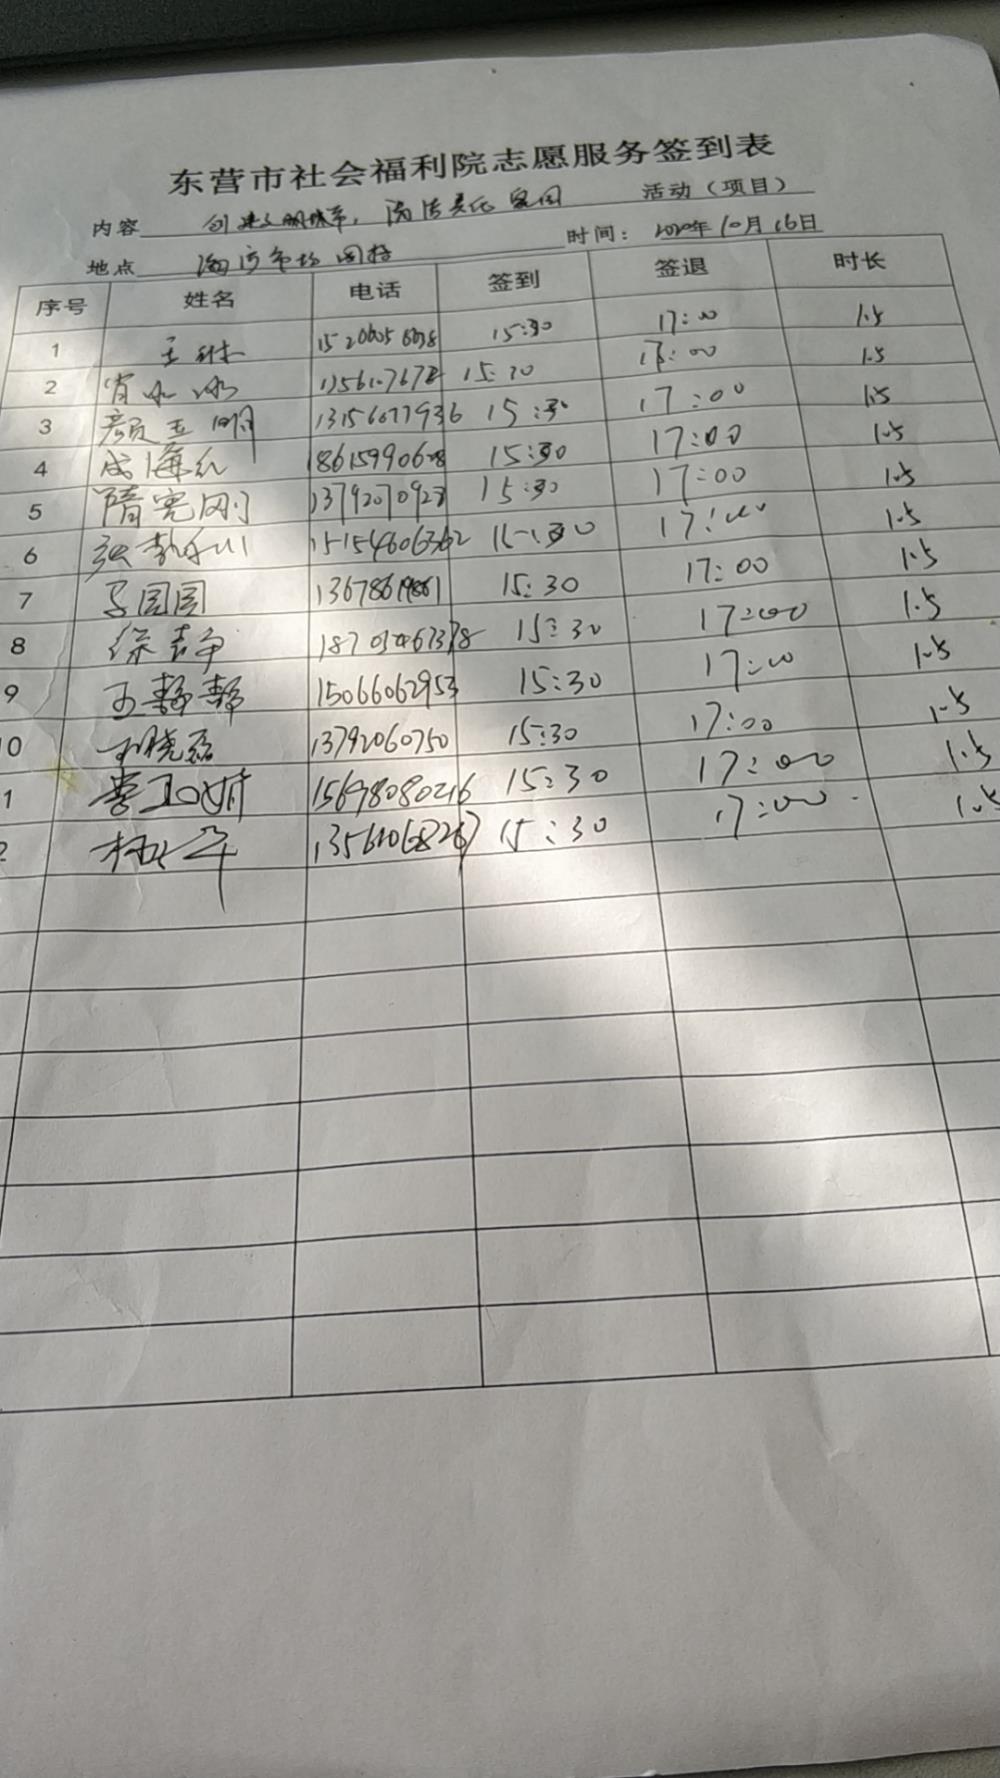 东营市社会福利院志愿服务签到表
内容 创建文明城市, 清洁美化家园 活动（项目）
地点 时间： 2020年10月16日
序号 姓名 电话 签到 签退 时长
1 王 15:30 17:00 1.5
2 肖冰冰 15:30 17:00 1.5
3 颜玉明 13156077936 15:30 17:00 1.5
4 成海红 15:30 17:00 1.5
5 隋宪刚 13792070923 15:30 17:00 1.5
6 15154606362 15:30 17:00 1.5
7 园园 13678619861 15:30 17:00 1.5
8 徐静 15:30 17:00 1.5
9 王静静 15066062953 15:30 17:00 1.5
10 晓磊 13792060750 15:30 17:00 1.5
1 15698080216 15:30 17:00 1.5
2 15:30 17:00 1.5